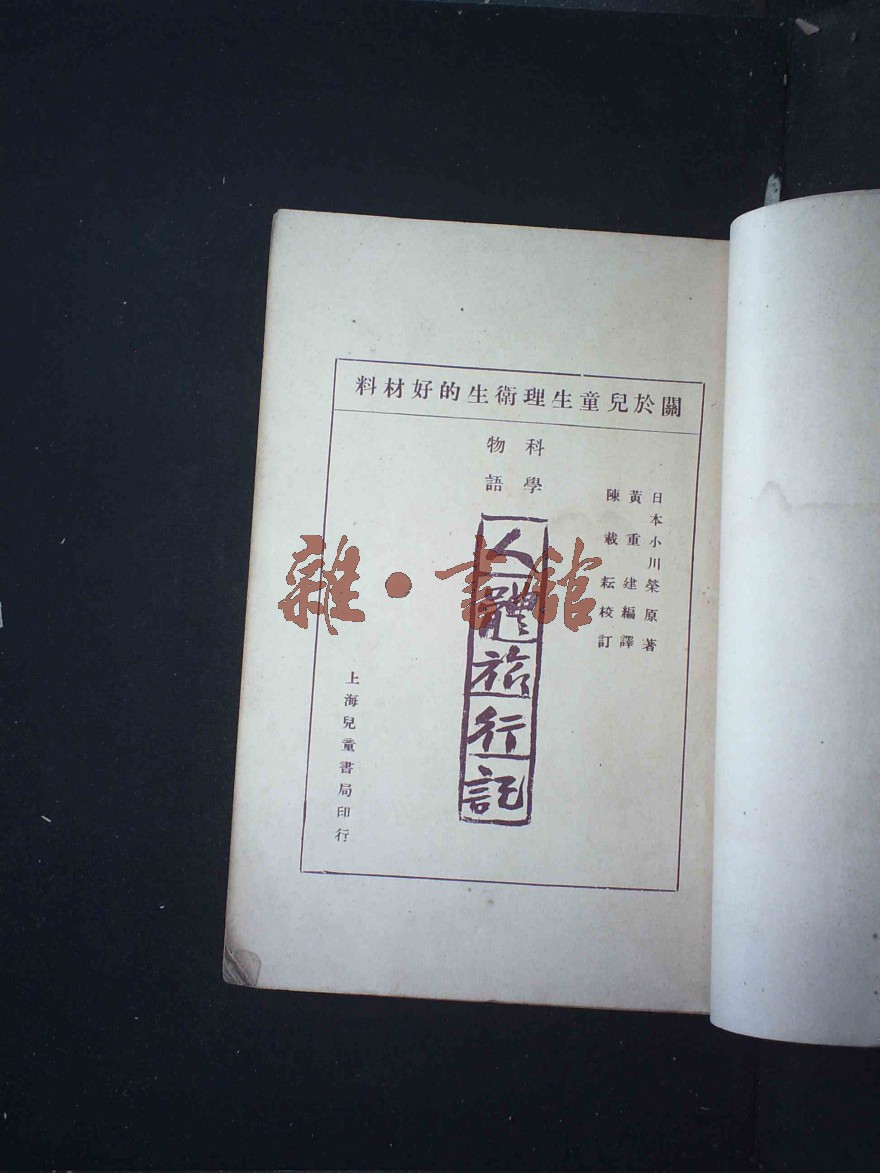 關於兒童生理衛生的好材料
日本小川榮原著
黃重建編譯
陳載耘校訂
科學
物語
人體旅行記
上海兒童書局印行
雜·書館